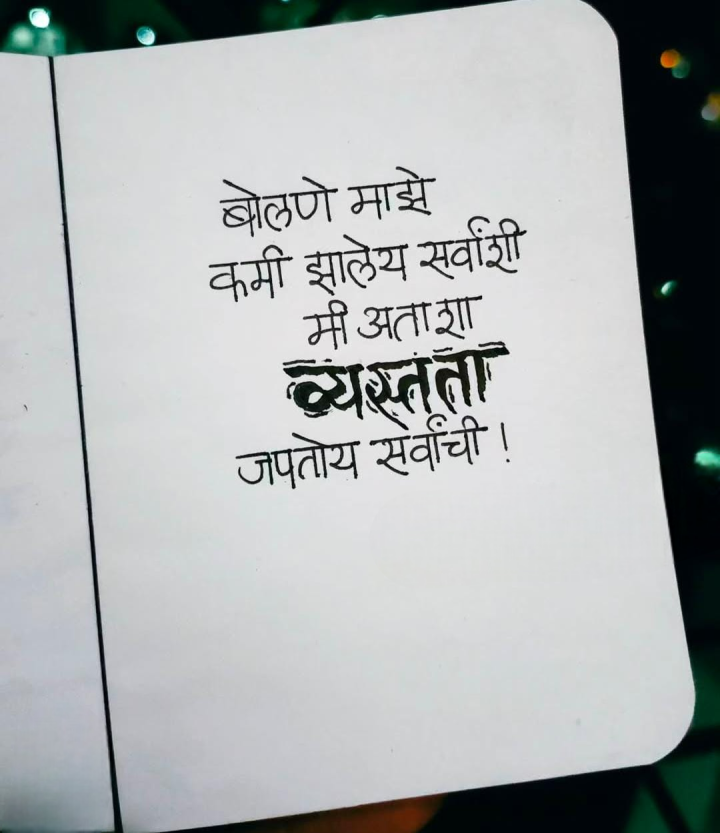 बोलणे माझे
कमी झालेय सर्वांशी
मी अताशा
व्यस्तता
जपतोय सर्वांची !